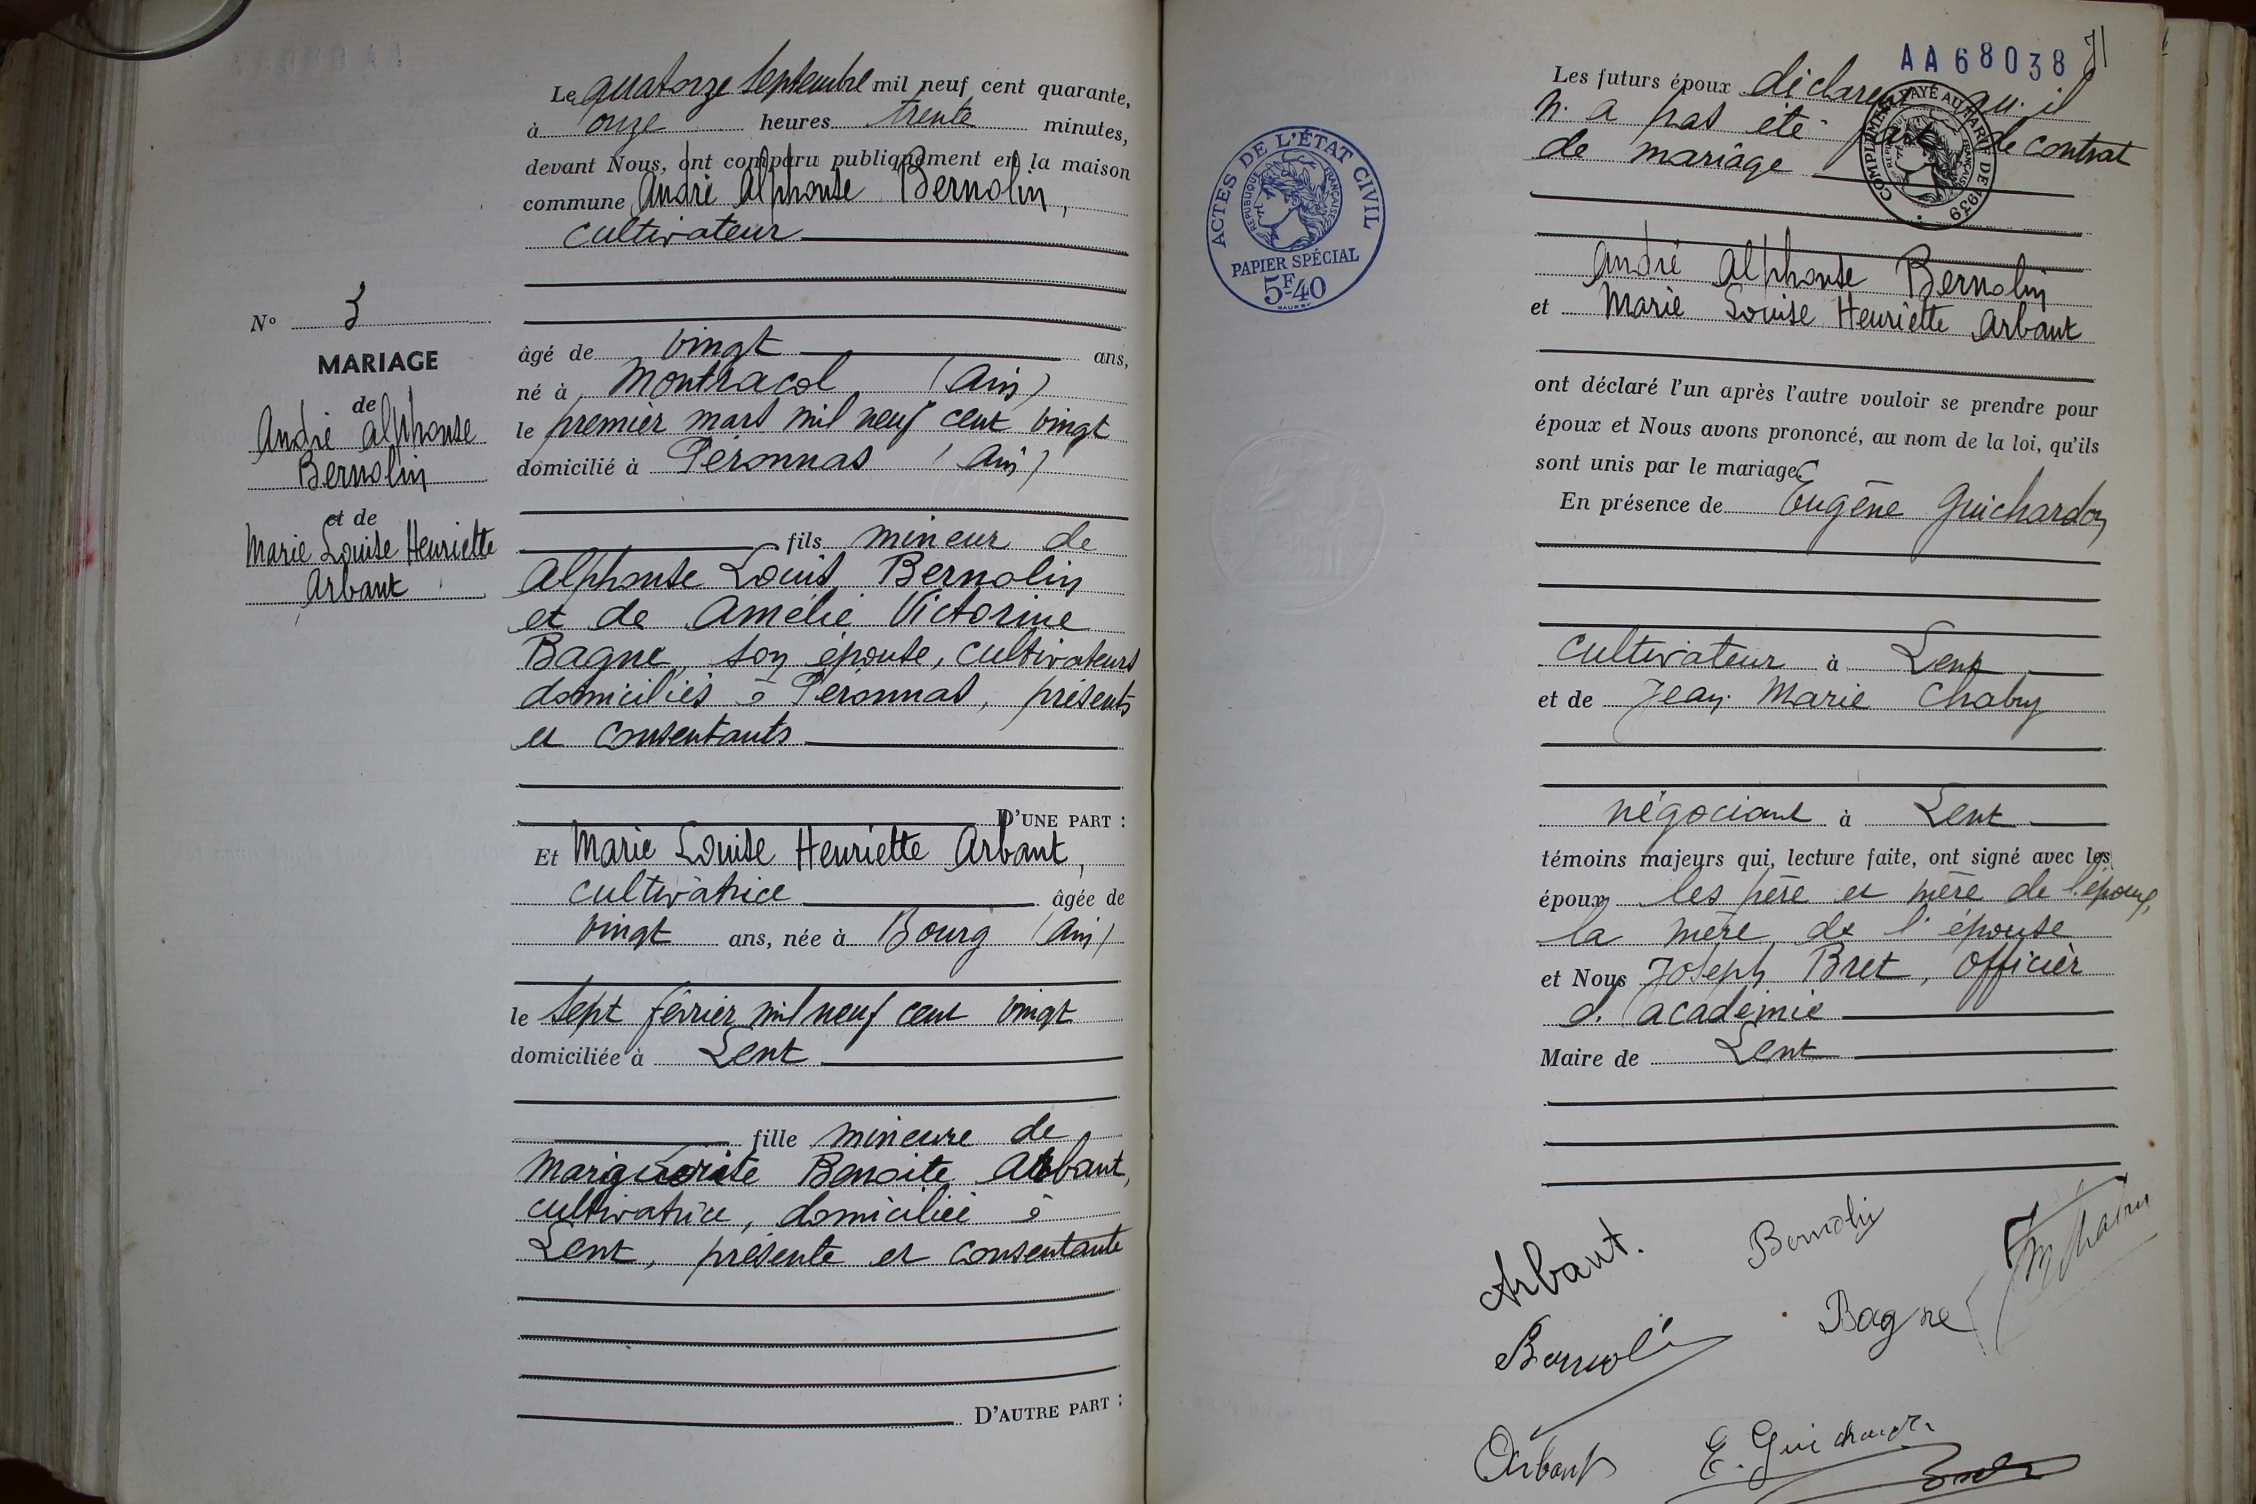 Le quatorze septembre mil neuf cent quarante,
à onze heures trente minutes,
devant Nous, ont comparu publiquement en la maison
commune André Alphonse Bernolin,
cultivateur
N° 3
MARIAGE
de
André Alphonse
Bernolin
et de
Marie Louise Henriette
Arbant
âgé de vingt ans,
né à Montracol (Ain)
le premier mars mil neuf cent vingt
domicilié à Péronnas (Ain)
fils mineur de
Alphonse Louis Bernolin
et de Amélie Victorine
Bagne, son épouse, cultivateurs
domiciliés à Péronnas, présents
et consentants
D'UNE PART :
Et Marie Louise Henriette Arbant,
cultivatrice âgée de
vingt ans, née à Bourg (Ain)
le sept février mil neuf cent vingt
domiciliée à Lent
fille mineure de
Marguerite Benoite Arbant,
cultivatrice, domiciliée à
Lent, présente et consentante
D'AUTRE PART :
AA68038
71
Les futurs époux déclarent qu'il
n'a pas été fait de contrat
de mariage
COMPLIMENT PAYÉ AU TARIF DE 1939
RÉPUBLIQUE FRANÇAISE
ACTES DE L'ÉTAT CIVIL
RÉPUBLIQUE FRANÇAISE
PAPIER SPÉCIAL
5F40
André Alphonse Bernolin
et Marie Louise Henriette Arbant
ont déclaré l'un après l'autre vouloir se prendre pour
époux et Nous avons prononcé, au nom de la loi, qu'ils
sont unis par le mariage.
En présence de Eugène Guichardon
cultivateur à Lent
et de Jean Marie Chabry
négociant à Lent
témoins majeurs qui, lecture faite, ont signé avec les
époux les père et mère de l'époux,
la mère de l'épouse
et Nous Joseph Bret, officier
d'académie
Maire de Lent
Arbant.
Bernolin
Bernolin
Bagne
Arbant
E. Guichardon